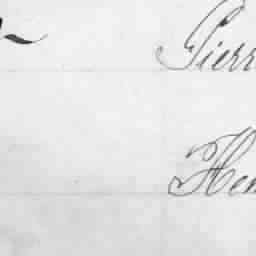 Pierr
Hen